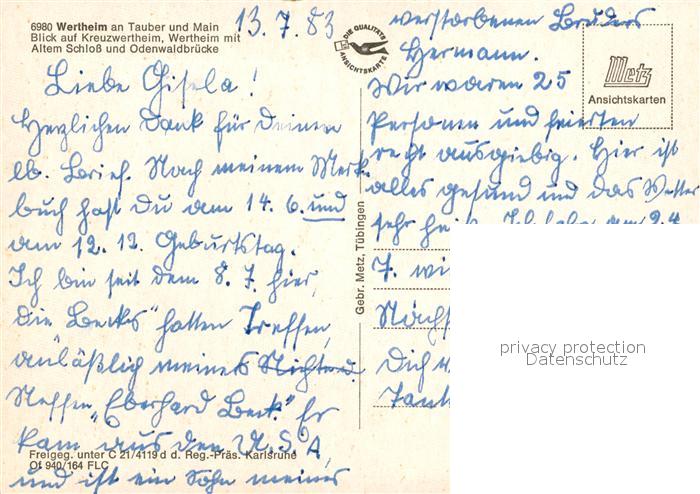 6980 Wertheim an Tauber und Main
Blick auf Kreuzwertheim, Wertheim mit
Altem Schloß und Odenwaldbrücke
13.7.83
Liebe Gisela!
Herzlichen Dank für Deinen
lb. Brief. Nach meinem Merk-
buch hast Du am 14.6. und
am 12.12. Geburtstag.
Ich bin seit dem 8.7. hier,
die Becks" hatten Treffen,
anläßlich meines Nichten u.
Neffen „Eberhard Beck." Er
kam aus den U.S.A,
und ist ein Sohn meines
Freigeg. unter C 21/4119 d d. Reg.-Präs. Karlsruhe
Of 940/164 FLC
DIE QUALITÄTS
ANSICHTSKARTE
Gebr. Metz, Tübingen
verstorbenen Bruders
Hermann.
Wir waren 25
Personen und feierten
recht ausgiebig. Hier ist
alles gesund und das Wetter
sehr am 24.
7.
Dich
Metz
Ansichtskarten
privacy protection
Datenschutz